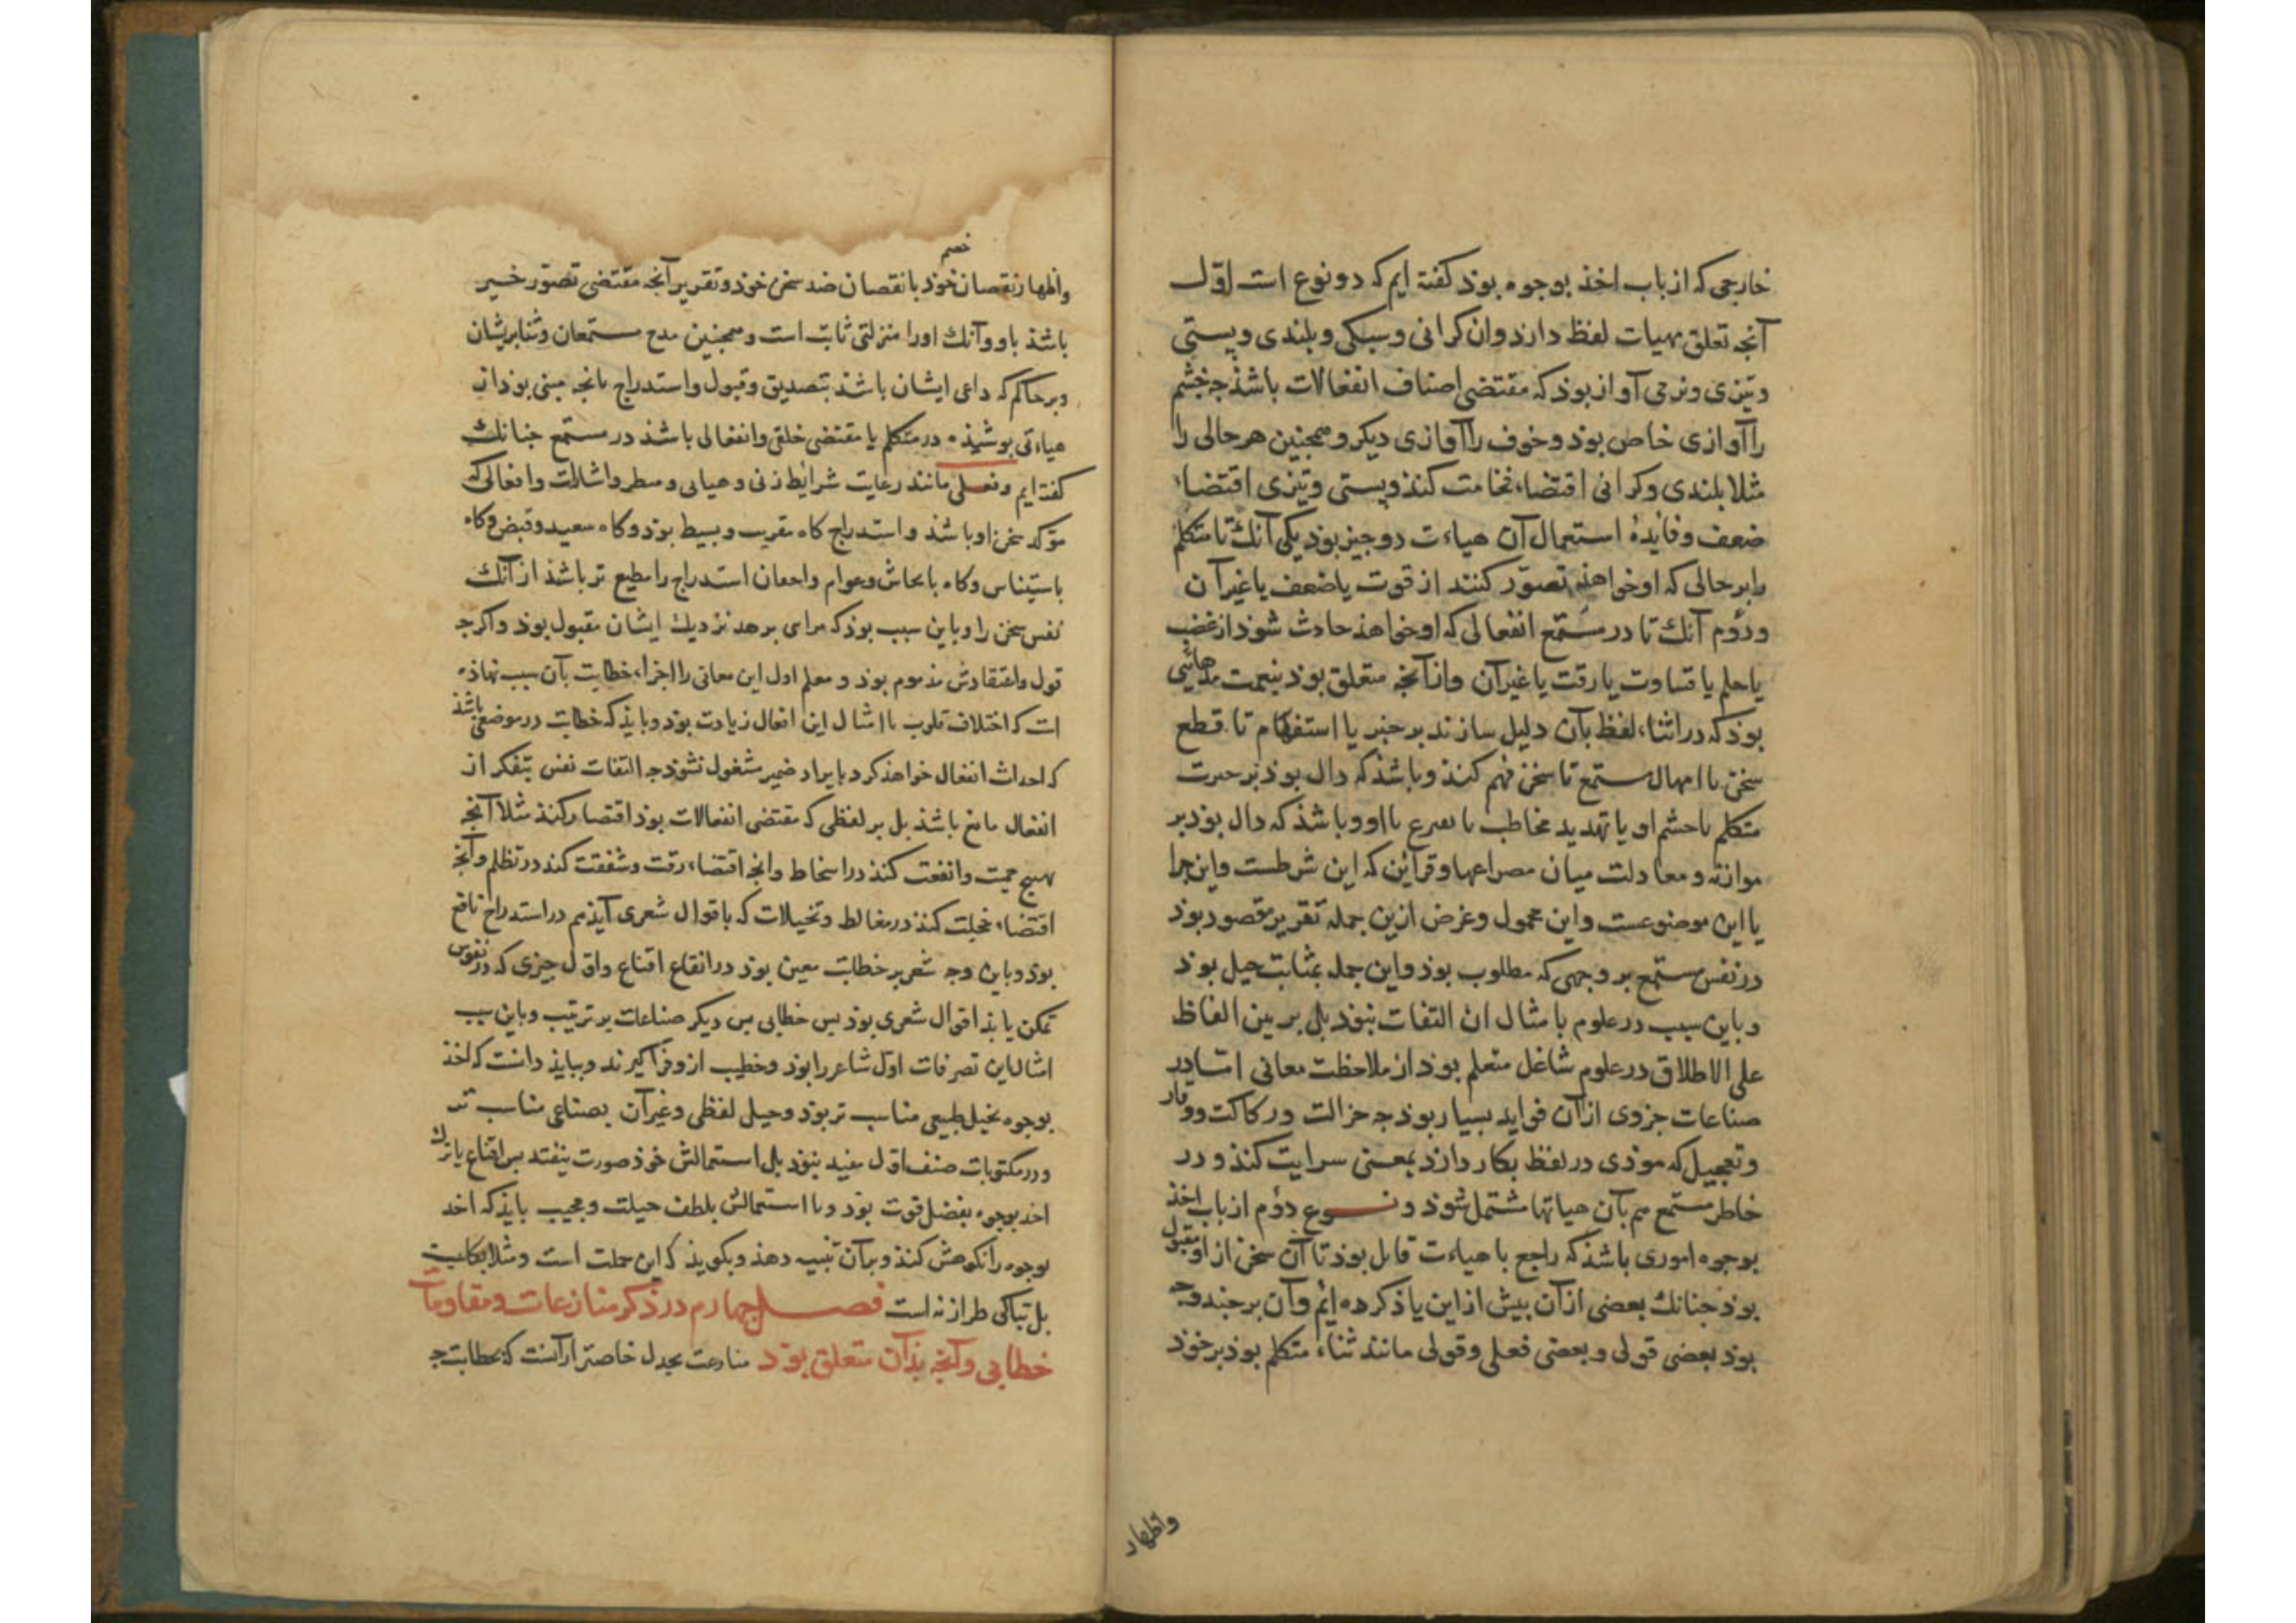 خارجی که از باب اخذ بوجوه بوذ کفته ایم که دو نوع است اوّل
آنچه تعلق بهیات لفظ دارد وان کرانی وسبکی وبلندی وپستی
وتیزی ونرمی آواز بوذ که مقتضی اصناف انفعالات باشذ جه خشم
را آوازی خاص بوذ وخوف را آوازی دیکر وهمجنین هر حالی را
مثلا بلندی وکرانی اقتضاء فخامت کنذ وپستی وتیزی اقتضاء
ضعف وفایدهٔ استعمال آن هیاءت دو جیز بوذ یکی آنک تا متکلم
را بر حالی که او خواهذ تصوّر کنند از قوت یا ضعف یا غیر آن
ودوم آنک تا در مستمع انفعالی که او خواهذ حادث شود از غضب
یا حلم یا قساوت یا رقت یا غیر آن وازآنچه متعلق بوذ بنغمت
بوذ که در اثناء لفظ بآن دلیل سازند بر خبر یا استفهام تا قطع
سخن یا امهال مستمع تا سخن فهم کنذ وباشذ که دال بوذ بر حیرت
متکلم یا خشم او یا تهدید مخاطب یا تضرع با او وباشذ که دال بوذ بر
موازنه ومعادلت میان مصراعها وقراین که این شرطست واین جزا
یا این موضوعست واین محمول وغرض ازین جمله تقریر مقصود بوذ
در نفس مستمع بر وجهی که مطلوب بوذ واین جمله بمثابت حیل بوذ
وباین سبب در علوم بامثال ان التفات نبوذ بل بر بین الفاظ
علی الاطلاق در علوم شاغل متعلم بوذ از ملاحظت معانی اما در
صناعات جزوی از آن فواید بسیار بوذ جه جزالت ورکاکت ووقار
وتعجیل که موذی در لفظ بکار دارد بمعنی سرایت کنذ ودر
خاطر مستمع هم بآن هیاتها مشتمل شوذ ونوع دوم از باب اخذ
بوجوه اموری باشذ که راجع با هیاءت قابل بوذ تا آن سخن از او مقبول
بوذ جنانک بعضی از آن بیش از این یاذ کرده ایم وآن بر جند وجه
بوذ بعضی قولی وبعضی فعلی وقولی مانند ثناء متکلم بوذ بر خوذ
واظهار
خصم
واظهار نقصان خوذ با نقصان ضد سخن خوذ وتقریر آنچه مقتضی تصوّر خیر
باشذ باو وآنک اورا منزلتی ثابت است وهمجنین مدح مستمعان وثنا بریشان
وبر حاکم که داعی ایشان باشذ بتصدیق وقبول واستدراج بانچه مبنی بوذ از
هیاءتی بوشیذه در متکلم یا مقتضی خلقی وانفعالی باشذ در مستمع جنانک
کفته ایم وفعلی مانند رعایت شرایط زی وهیات ومنظر واشارات وافعالی که
موکد سخن او باشذ واستدراج کاه مقریب وبسیط بوذ وکاه وقبض وکاه
باستیناس وکاه بایحاش وعوام واحمقان استدراج را مطیع تر باشذ از آنک
نفس سخن را وباین سبب بوذ که مرای بزهد نزدیک ایشان مقبول بوذ واکرجه
قول واعتقادش مذموم بوذ ومعلم اول این معانی را اجزاء خطابت بآن سبب نهاذه
است که اختلاف قلوب با امثال این افعال زیادت بوذ وبایذ که خطابت در موضعی باشذ
که احداث انفعال خواهذ کرد بایراد ضمیر مشغول نشوذ جه التفات نفس بتفکر از
انفعال مانع باشذ بل بر لفظی که مقتضی انفعالات بوذ اقتصار کنذ مثلا آنچه
تهییج حمیت وانفت کنذ در اسخاط وانچه اقتضاء رقت وشفقت کند در تظلم وآنچه
اقتضاء خجلت کنذ در مغالط وتخیلات که باقوال شعری آیذ هم در استدراج نافع
بوذ وباین وجه شعر بر خطابت معین بوذ در ایقاع اقناع واوّل جیزی که در نفوس
تمکن یابذ اقوال شعری بوذ بس خطابی بس دیکر صناعات بر ترتیب وباین سبب
امثال این تصرفات اول شاعر را بوذ وخطیب ازو فراکیرند وببایذ دانست که اخذ
بوجوه بحیل طبیعی مناسب تر بوذ وحیل لفظی وغیر آن بصناعی مناسب تر
ودر مکتوبات صنف اوّل مفید نبوذ بل استعمالش خوذ صورت نیفتد بس اقناع یا ترک
اخذ بوجوه بفضل قوت بوذ ویا استعمالش بلطف حیلت ومجیب بایذ که اخذ
بوجوه را نکوهش کنذ وبرآن تنبیه دهذ وبکویذ که این حیلت است ومثلا بکا نیست
بل تباکی طرازنه است فصل جهارم در ذکر منازعات ومقاومات
خطابی وآنچه بذان متعلق بوذ منازعت بجدل خاصتر از آنست که بخطابت جه